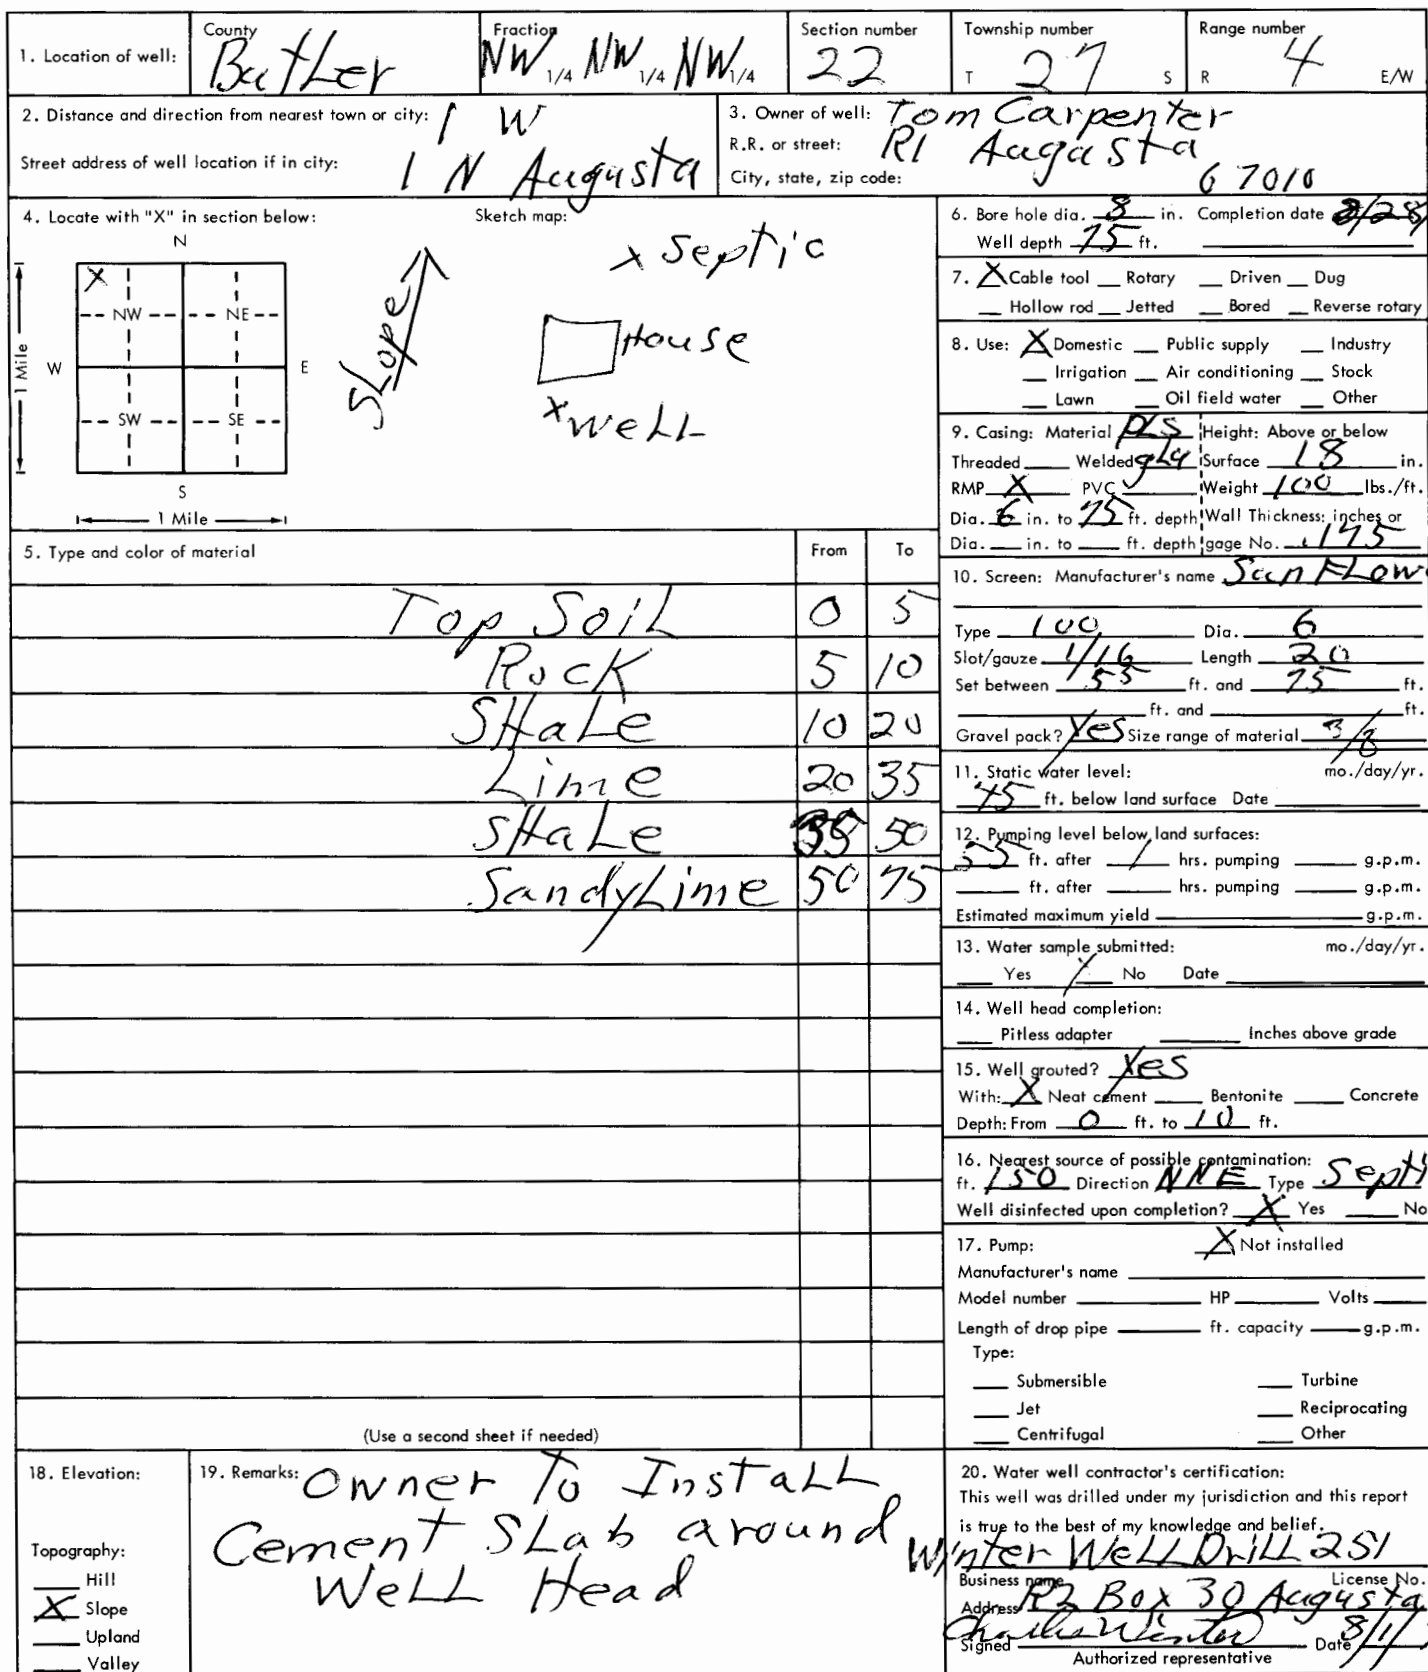 1. Location of well: County Butler Fraction NW 1/4 NW 1/4 NW 1/4 Section number 22 Township number T 27 S Range number R 4 E/W
2. Distance and direction from nearest town or city: 1 W
Street address of well location if in city: 1 N Augusta
3. Owner of well: Tom Carpenter
R.R. or street: R1 Augusta
City, state, zip code: 67010
4. Locate with "X" in section below:
N
X
NW NE
W E
1 Mile
SW SE
S
1 Mile
Sketch map:
x Septic
Slope
House
x Well
5. Type and color of material From To
Top Soil 0 5
Rock 5 10
SHaLe 10 20
Lime 20 35
SHaLe 35 50
Sandy Lime 50 75
(Use a second sheet if needed)
6. Bore hole dia. 8 in. Completion date
Well depth 75 ft.
7. X Cable tool Rotary Driven Dug
Hollow rod Jetted Bored Reverse rotary
8. Use: X Domestic Public supply Industry
Irrigation Air conditioning Stock
Lawn Oil field water Other
9. Casing: Material PLS Height: Above or below
Threaded Welded Surface 18 in.
RMP X PVC Weight 100 lbs./ft.
Dia. 6 in. to 75 ft. depth Wall Thickness: inches or
Dia. in. to ft. depth gage No.
10. Screen: Manufacturer's name SunFlow
Type 100 Dia. 6
Slot/gauze 1/16 Length 20
Set between 55 ft. and 75 ft.
ft. and ft.
Gravel pack? Yes Size range of material 3/8
11. Static water level: mo./day/yr.
45 ft. below land surface Date
12. Pumping level below land surfaces:
55 ft. after 1 hrs. pumping g.p.m.
ft. after hrs. pumping g.p.m.
Estimated maximum yield g.p.m.
13. Water sample submitted: mo./day/yr.
Yes / No Date
14. Well head completion:
Pitless adapter Inches above grade
15. Well grouted? Yes
With: X Neat cement Bentonite Concrete
Depth: From 0 ft. to 10 ft.
16. Nearest source of possible contamination:
ft. 150 Direction NNE Type Septi
Well disinfected upon completion? X Yes No
17. Pump: X Not installed
Manufacturer's name
Model number HP Volts
Length of drop pipe ft. capacity g.p.m.
Type:
Submersible Turbine
Jet Reciprocating
Centrifugal Other
18. Elevation:
Topography:
Hill
X Slope
Upland
Valley
19. Remarks: Owner To Install
Cement SLab around
Well Head
20. Water well contractor's certification:
This well was drilled under my jurisdiction and this report
is true to the best of my knowledge and belief.
Winter Well Drill 251
Business name License No.
Address R2 Box 30 Augusta
Signed Charlie Winter Date 8/1/
Authorized representative